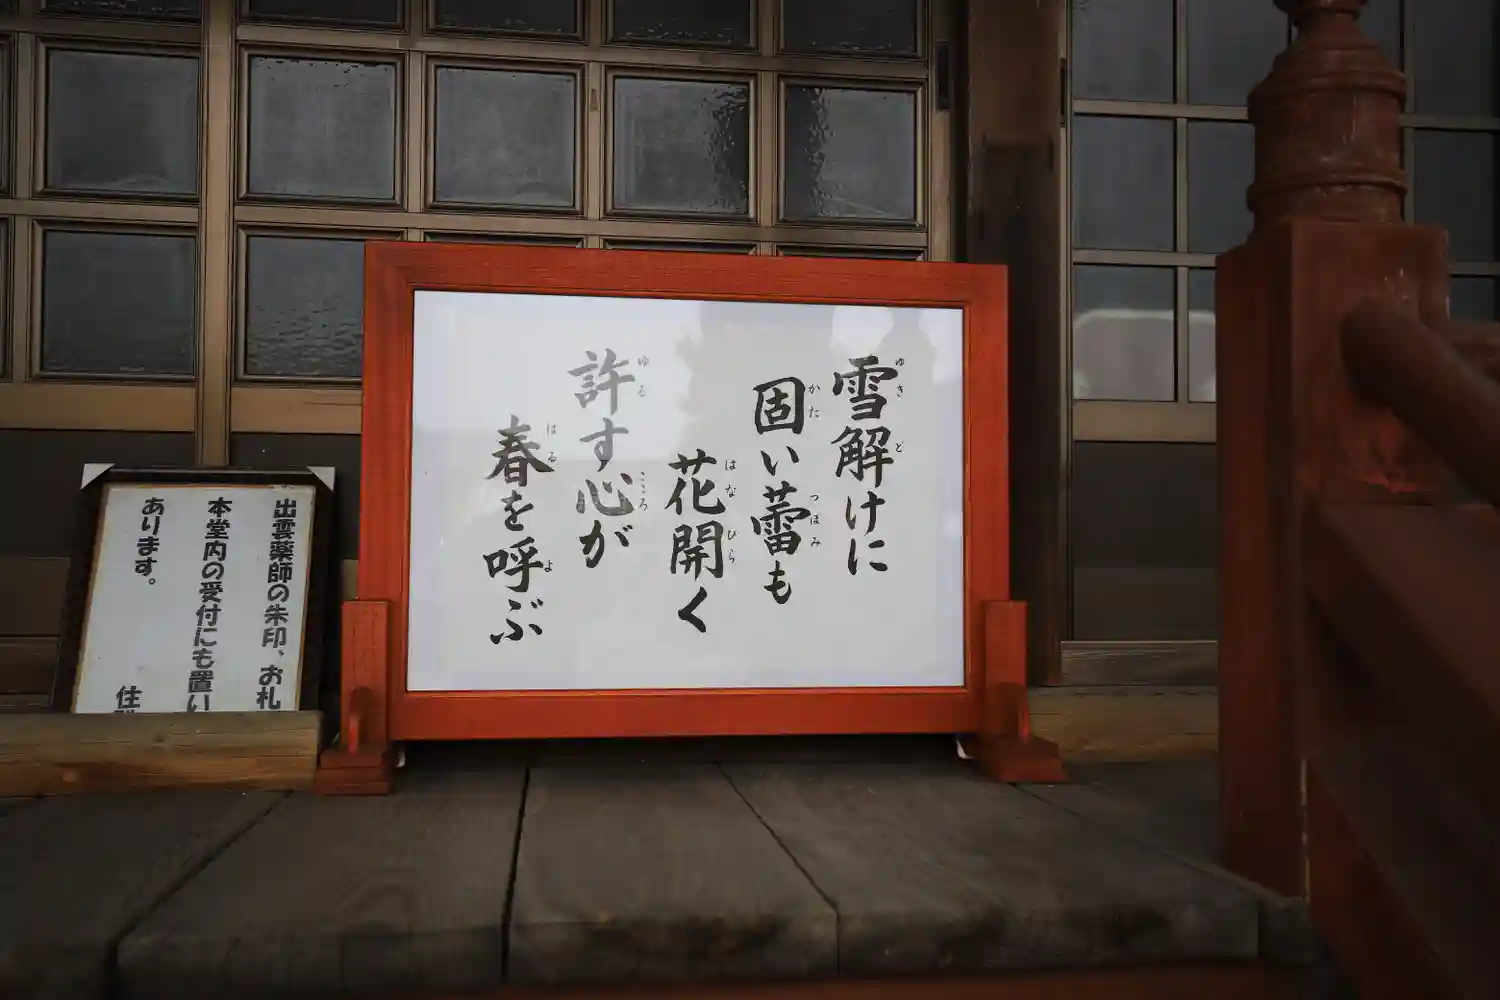 雪解けに
固い蕾も
花開く
許す心が
春を呼ぶ
ゆき
ど
かた
つぼみ
はな
ひら
ゆる
こころ
はる
よ
出雲薬師の朱印、お札
本堂内の受付にも置い
あります。
住職